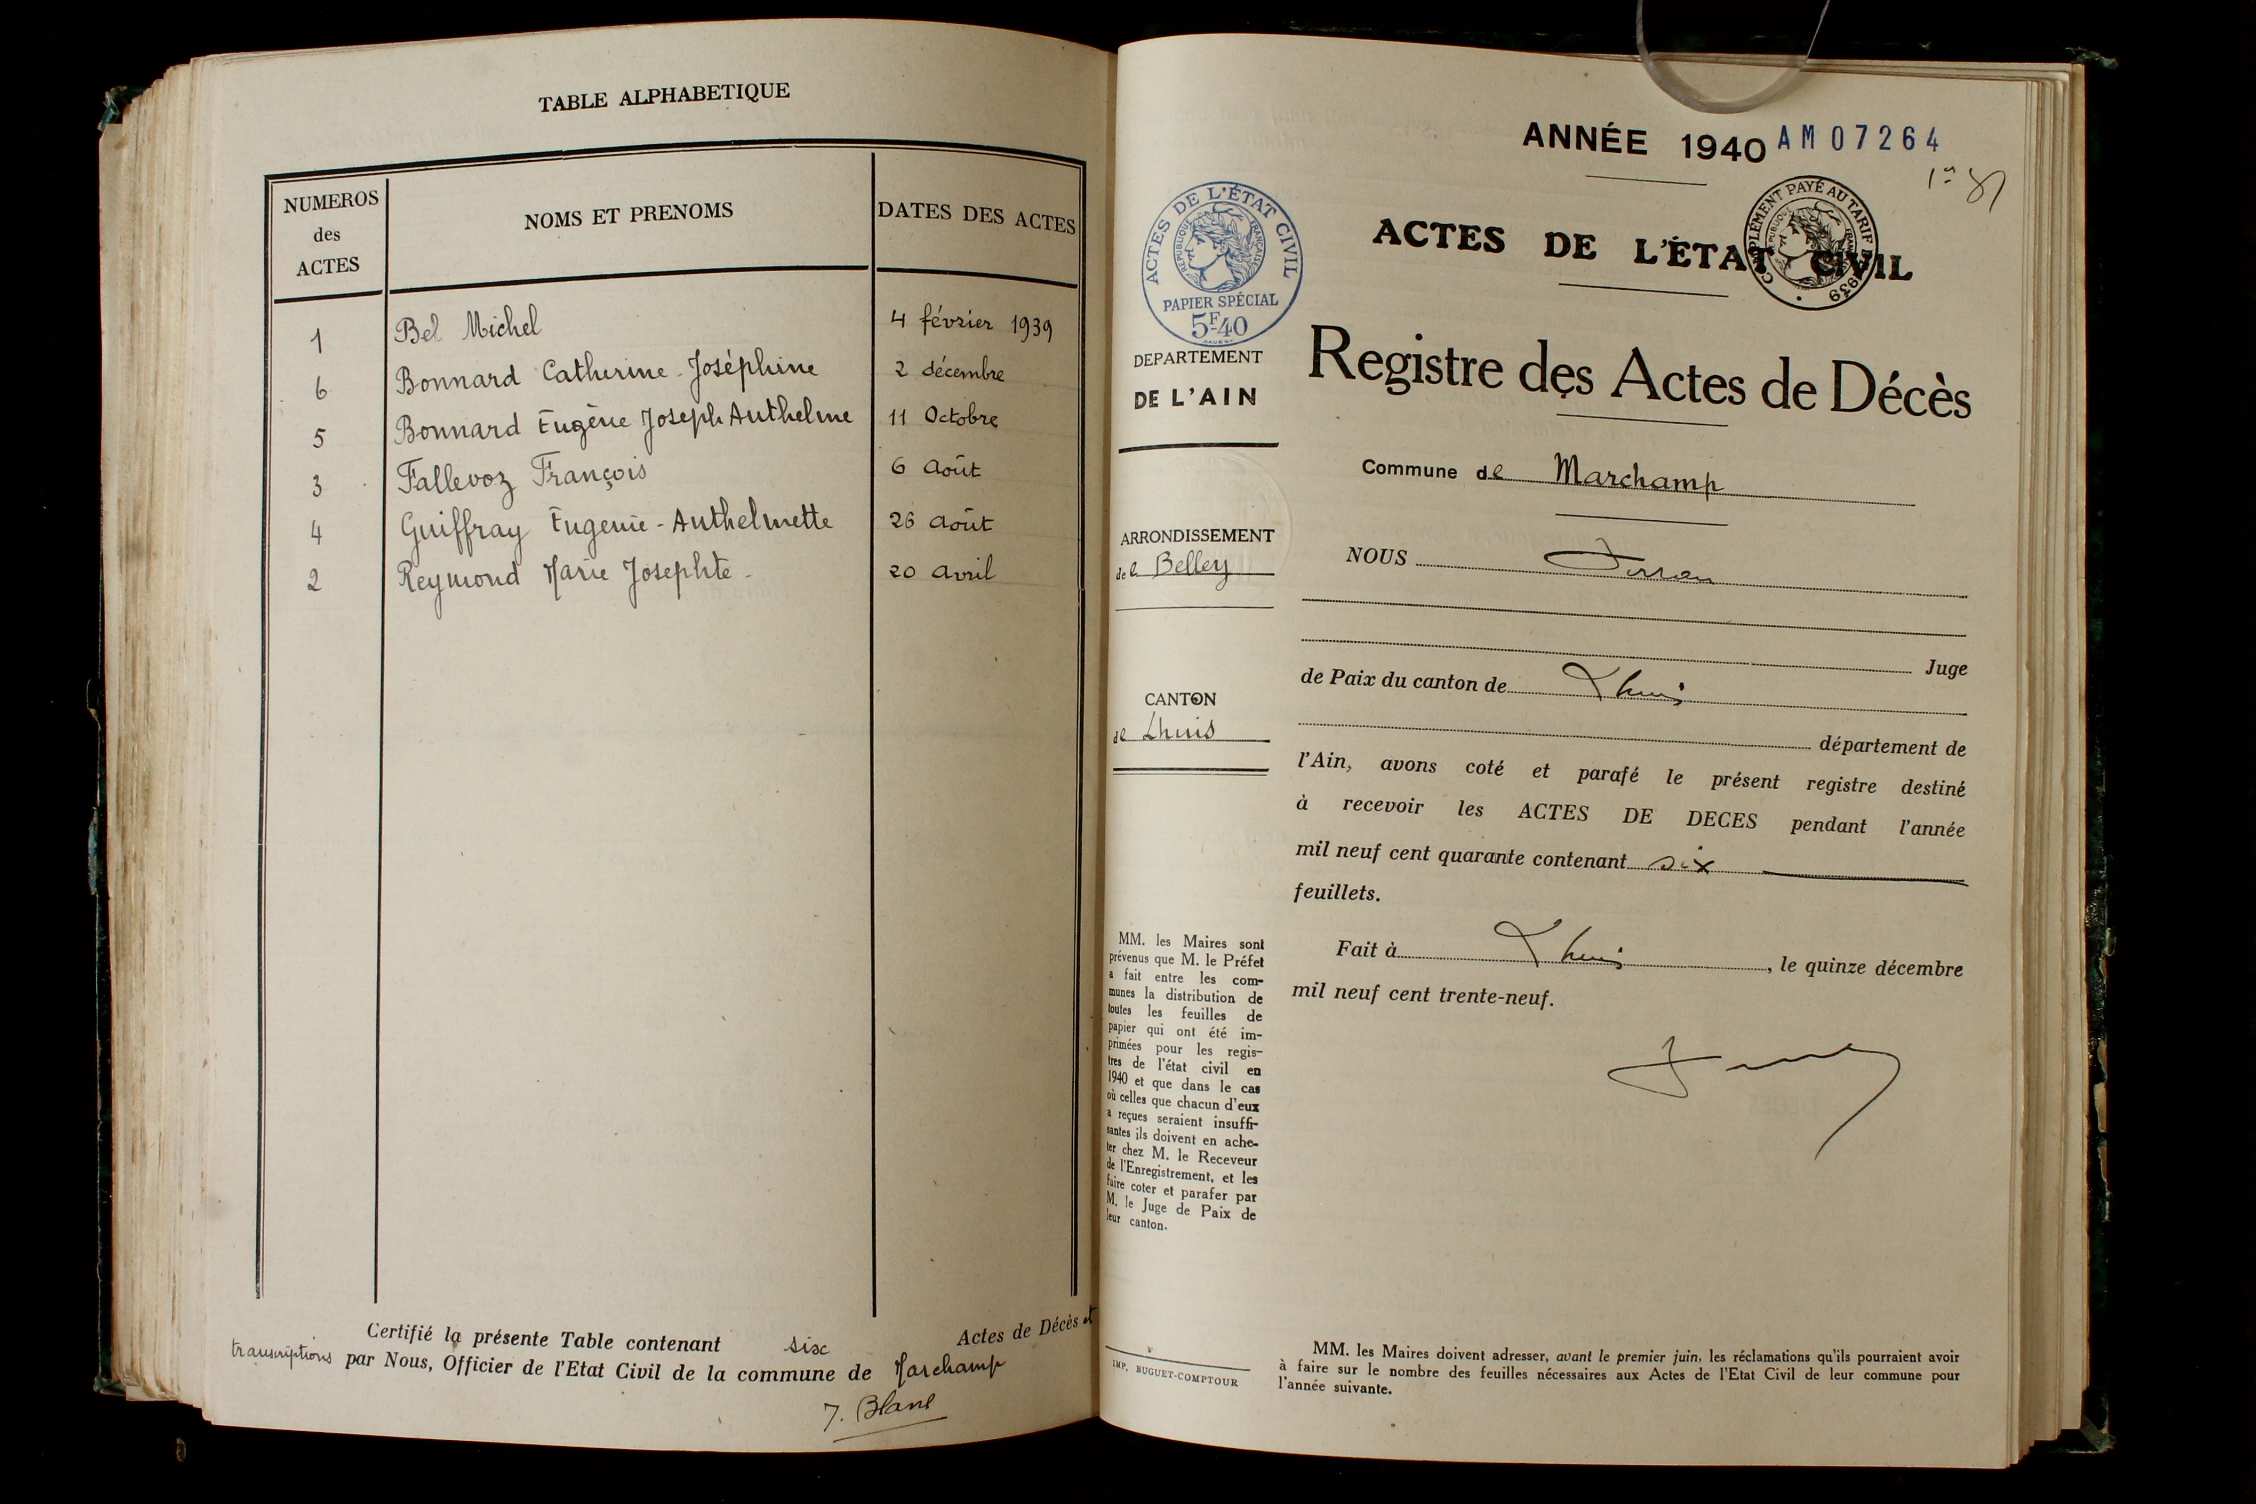 TABLE ALPHABETIQUE
NUMEROS
des
ACTES
NOMS ET PRENOMS
DATES DES ACTES
1 Bel Michel 4 février 1939
6 Bonnard Catherine-Joséphine 2 décembre
5 Bonnard Eugène Joseph Anthelme 11 Octobre
3 Fallevoz François 6 Août
4 Guiffray Eugenie-Anthelmette 26 Août
2 Reymond Marie Josephte 20 Avril
Certifié la présente Table contenant six Actes de Décès et
transcriptions par Nous, Officier de l'Etat Civil de la commune de Marchamp
J. Blanc
ANNÉE 1940
AM 07264
ACTES DE L'ÉTAT CIVIL
COMPLÉMENT PAYÉ AU TARIF
1939
ACTES DE L'ÉTAT CIVIL
RÉPUBLIQUE FRANÇAISE
PAPIER SPÉCIAL
5F40
DEPARTEMENT
DE L'AIN
ARRONDISSEMENT
de Belley
CANTON
de Lhuis
MM. les Maires sont
prévenus que M. le Préfet
a fait entre les com-
munes la distribution de
toutes les feuilles de
papier qui ont été im-
primées pour les regis-
tres de l'état civil en
1940 et que dans le cas
où celles que chacun d'eux
a reçues seraient insuffi-
santes ils doivent en ache-
ter chez M. le Receveur
de l'Enregistrement, et les
faire coter et parafer par
M. le Juge de Paix de
leur canton.
IMP. BUGUET-COMPTOUR
Registre des Actes de Décès
Commune de Marchamp
NOUS
Juge
de Paix du canton de Lhuis
département de
l'Ain, avons coté et parafé le présent registre destiné
à recevoir les ACTES DE DECES pendant l'année
mil neuf cent quarante contenant six
feuillets.
Fait à Lhuis, le quinze décembre
mil neuf cent trente-neuf.
MM. les Maires doivent adresser, avant le premier juin, les réclamations qu'ils pourraient avoir
à faire sur le nombre des feuilles nécessaires aux Actes de l'Etat Civil de leur commune pour
l'année suivante.